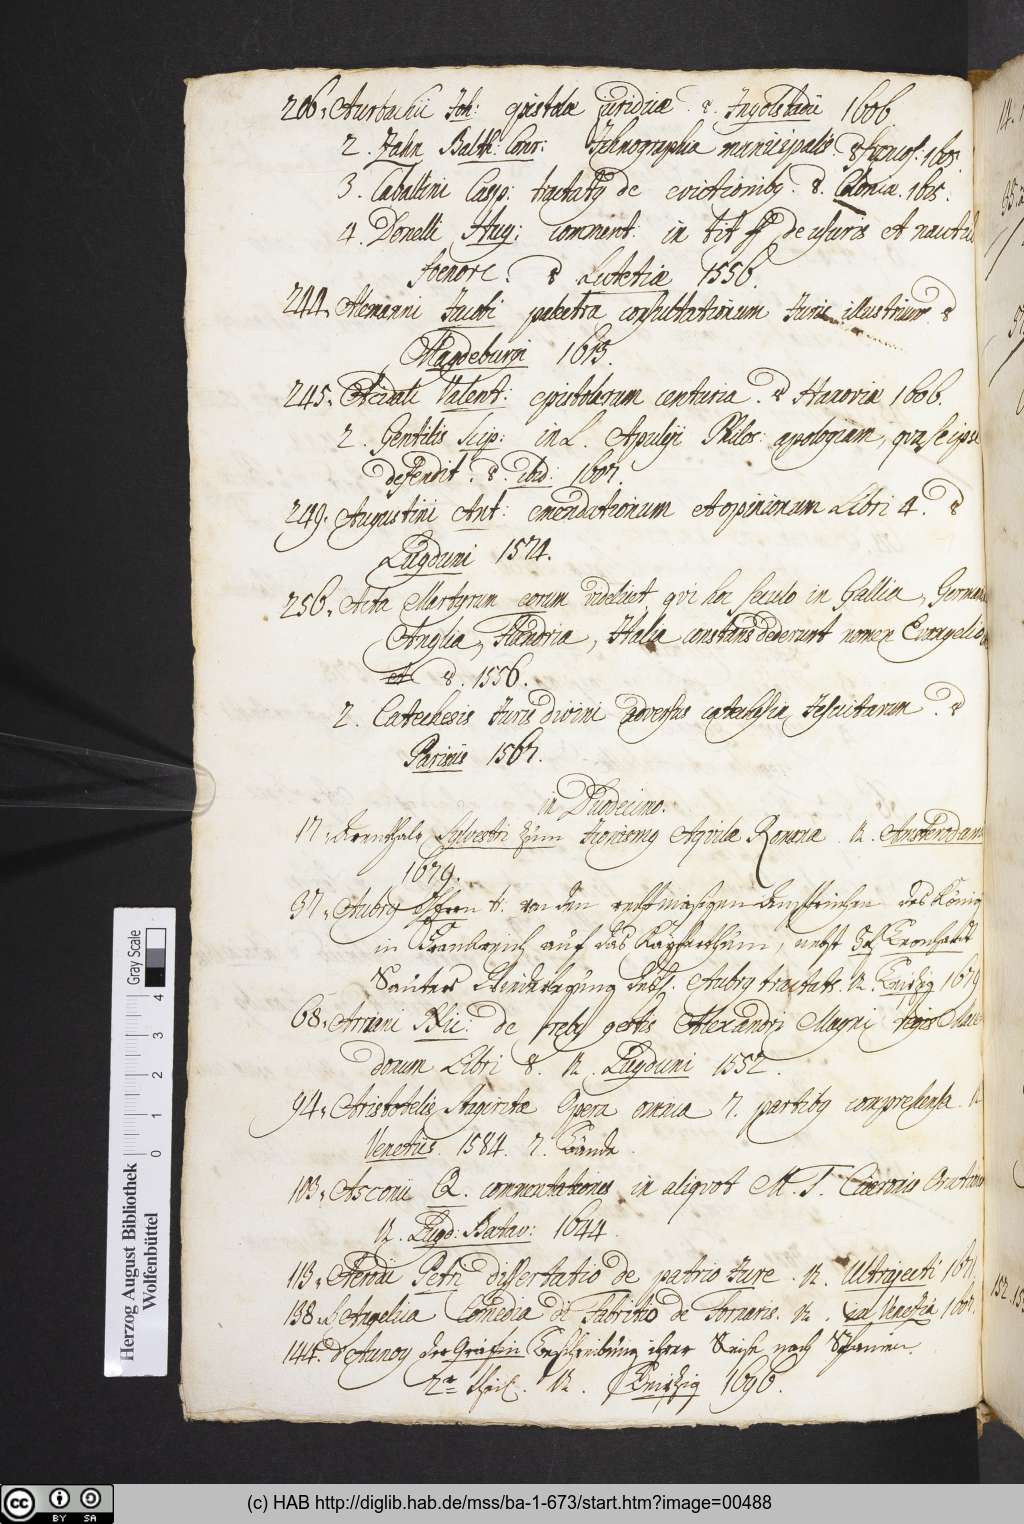 206. Aurbachii Joh: epistolæ juridicæ. 8. Ingolstadii 1606
2. Jahn Balth: Conr: Ichnographia municipalis. 8. Francof. 1605.
3. Caballini Casp: tractatq de evictionibq. 8. Coloniæ. 1615.
4. Donelli Hug: comment. in tit ff de usuris et nautico
foenore. 8 Lutetiæ 1556.
244. Alemanni Jacobi palæstra consultationum Juris illustrium. 8
Magdeburgi 1613.
245. Acidali Valent: epistolarum centuria. 8 Hanoviæ 1606.
2. Gentilis Scip: in L. Apuleji Philos: apologiam, qva se ipse
defendit. 8. ibid: 1607.
249. Augustini Ant: emendationum et opinionum Libri 4. 8
Lugduni 1574.
256. Acta Martyrum eorum videlicet, qvi hoc seculo in Gallia, Germania
Anglia, Flandria, Italia constans dederunt nomen Evangelio
8. 1556.
2. Catechesis Juris divini adversus catechesin Jesuitarum. 8
Parisiis 1567.
in Duodecimo.
17. Sylvestri zum Aqvilæ Romana. 12. Amsterodami
1679.
37. Aubry Herrn A. von den rechtmäßigen Ansprüchen des König
in Frankreich auf das Kayserthum, nebst Leonhardt
Sauters Wiederlegung des. Aubry tractats. 12. Leipzig 1679
68. Arriani Nic: de rebq gestis Alexandri Magni regis Mace
donum Libri 8. 12. Lugduni 1552.
94. Aristotelis Stagiritæ Opera omnia 7. partibq comprehensa. 12
Venetiis. 1584. 7. Bände.
103. Asconii Q. commentationes in aliqvot M. T. Ciceronis Orationes
12. Lugd: Batav: 1644.
113. Aerodii Petri dissertatio de patrio Jure. 12. Ultrajecti 1671
138. Angelica Comedia di Fabritio de Fornaris. 12. in Venetia 1607.
144. d'Aunoy der Gräfin Beschreibung ihrer Reise nach Spanien.
2r Theil. 12. Leipzig 1696.
Herzog August Bibliothek
Wolfenbüttel
Gray Scale
0 1 2 3 4
(c) HAB http://diglib.hab.de/mss/ba-1-673/start.htm?image=00488
cc BY SA